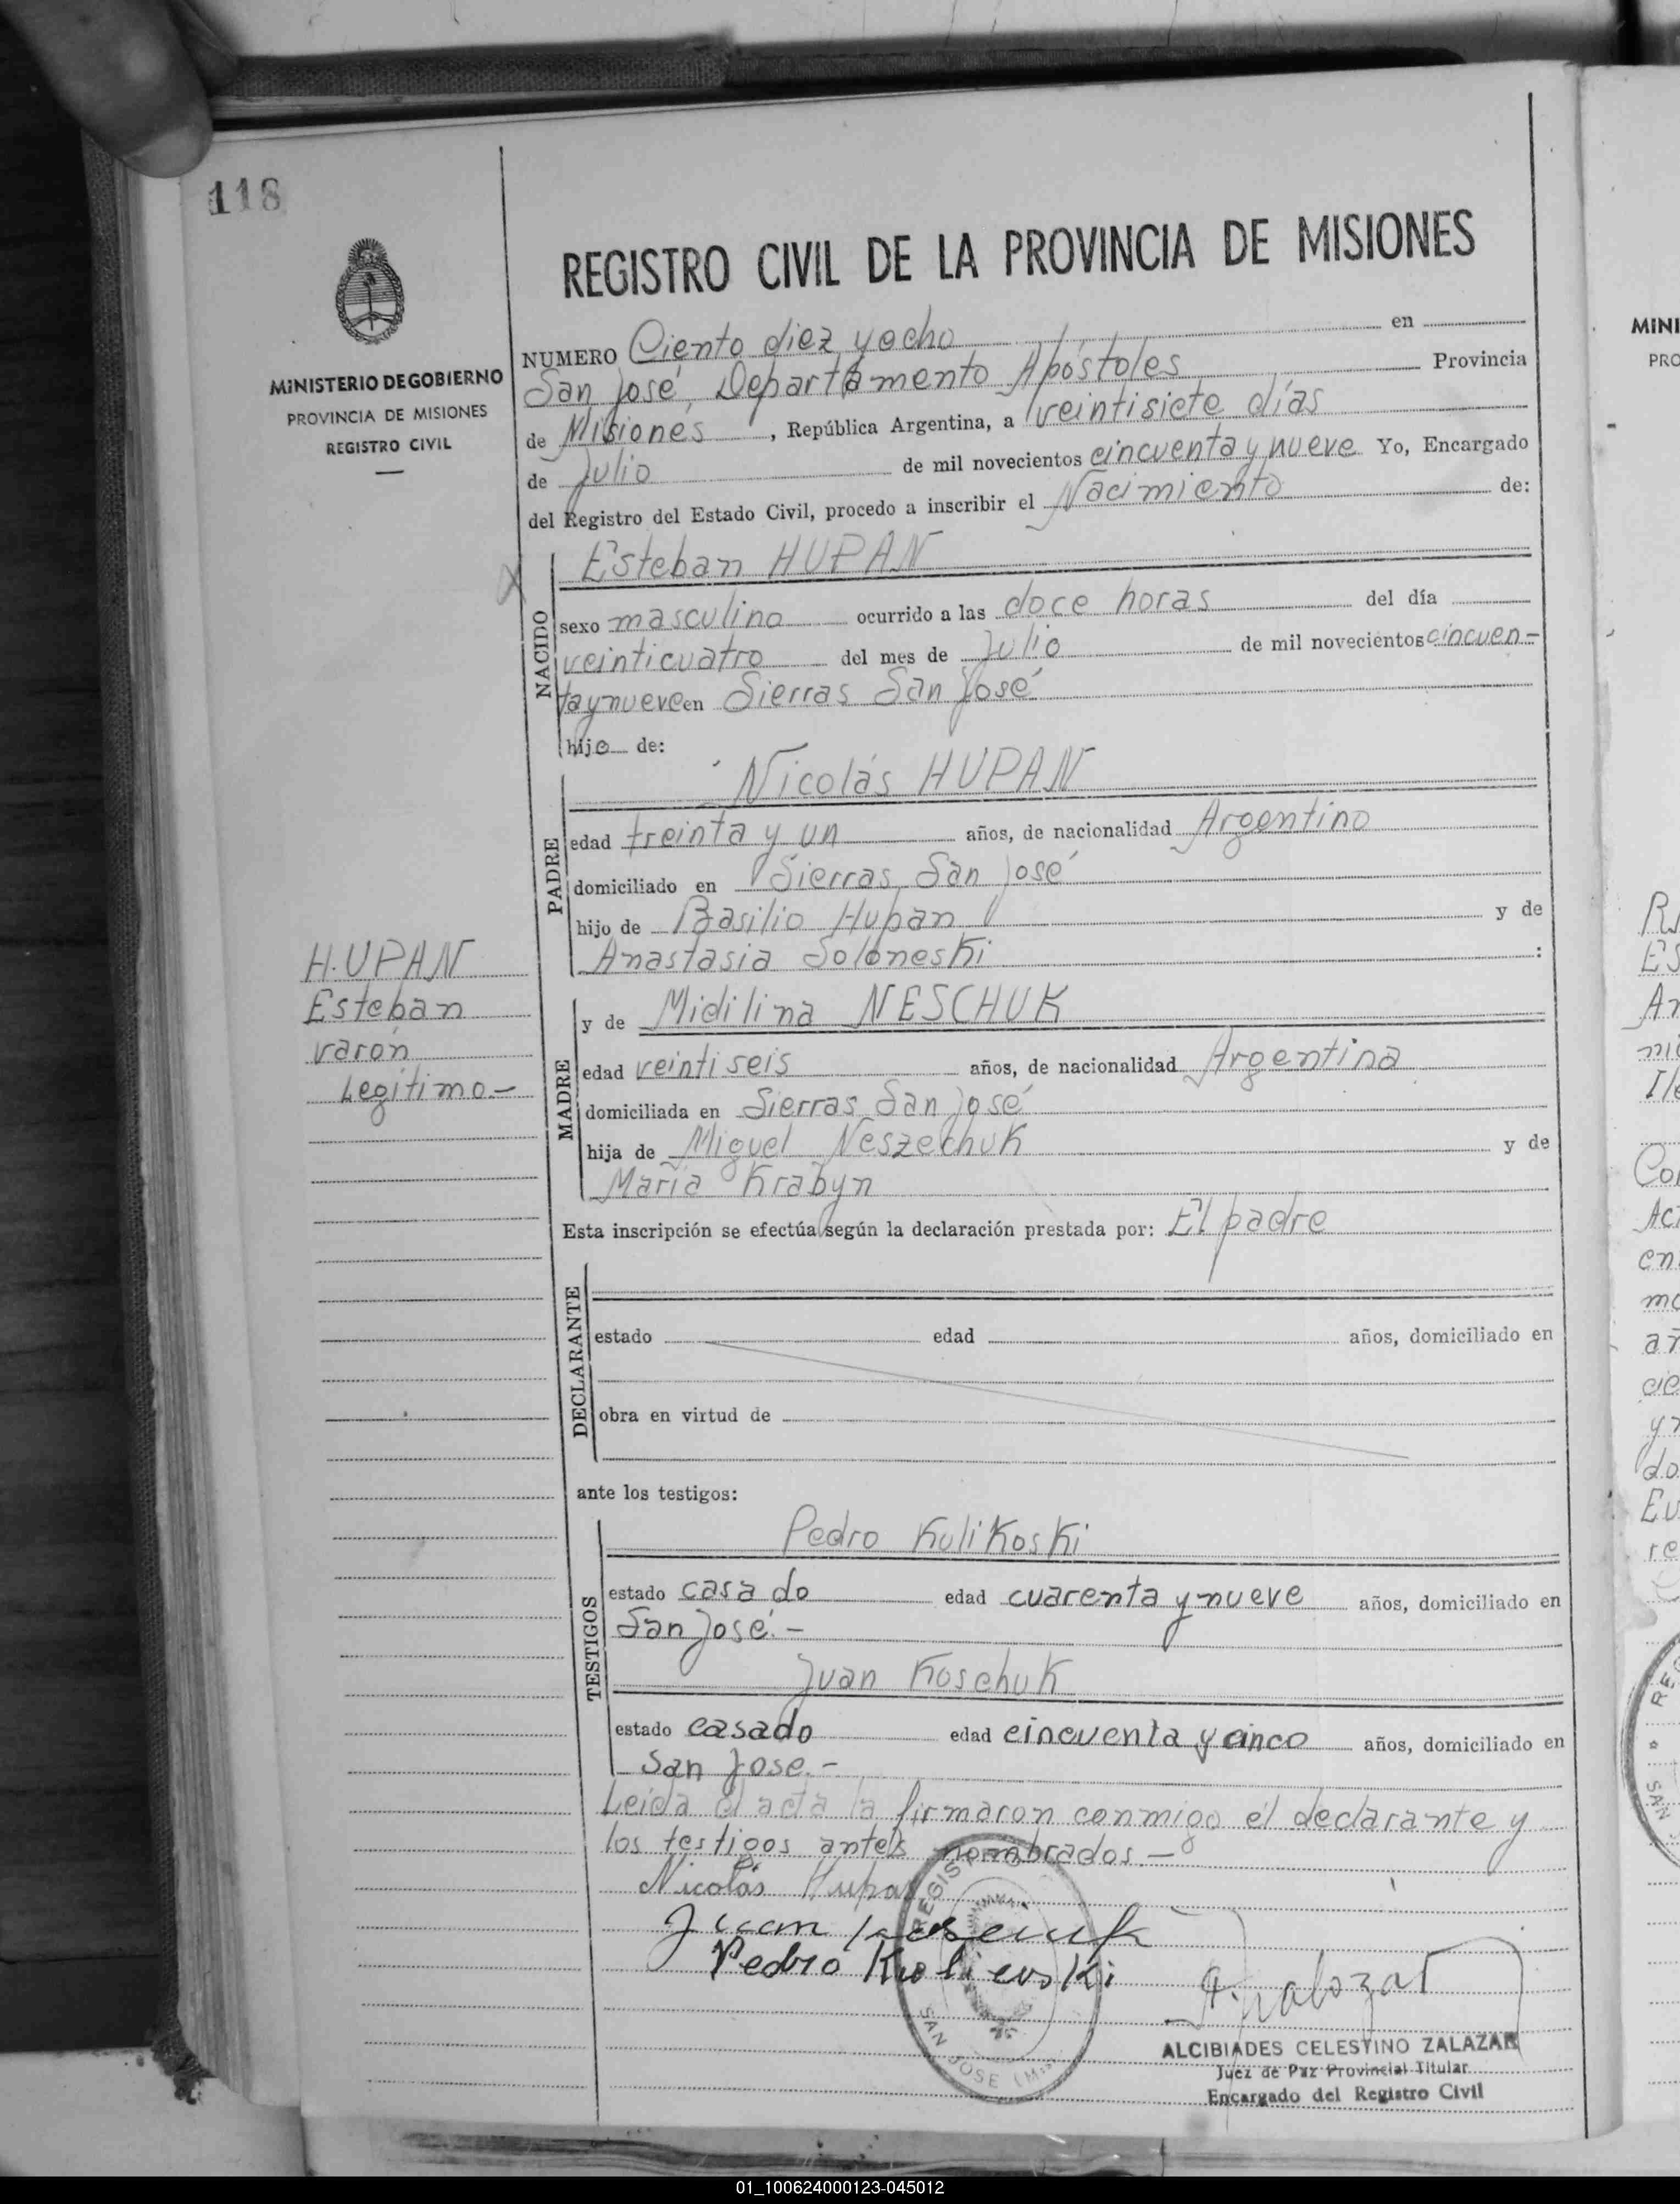 118
MINISTERIO DE GOBIERNO
PROVINCIA DE MISIONES
REGISTRO CIVIL
REGISTRO CIVIL DE LA PROVINCIA DE MISIONES
NUMERO Ciento diez y ocho en
San José, Departamento Apóstoles Provincia
de Misiones, República Argentina, a veintisiete días
de Julio de mil novecientos cincuenta y nueve Yo, Encargado
del Registro del Estado Civil, procedo a inscribir el Nacimiento de:
NACIDO
Esteban HUPAN
sexo masculino ocurrido a las doce horas del día
veinticuatro del mes de Julio de mil novecientos cincuen-
ta y nueve en Sierras San José
hijo de:
PADRE
Nicolás HUPAN
edad treinta y un años, de nacionalidad Argentino
domiciliado en Sierras San José
hijo de Basilio Hupan y de
Anastasia Soloneski :
HUPAN
Esteban
varón
Legítimo.-
MADRE
y de Midilina NESCHUK
edad veintiseis años, de nacionalidad Argentina
domiciliada en Sierras San José
hija de Miguel Neszechuk y de
María Krabyn
Esta inscripción se efectúa según la declaración prestada por: El padre
DECLARANTE
estado edad años, domiciliado en
obra en virtud de
ante los testigos:
TESTIGOS
Pedro Kulikoski
estado casado edad cuarenta y nueve años, domiciliado en
San José.-
Juan Koschuk
estado casado edad cincuenta y cinco años, domiciliado en
San Jose.-
Leida el acta la firmaron conmigo el declarante y
los testigos antes nombrados.-
Nicolás Hupan
Juan
Pedro
REGIS
SAN JOSE (M
ALCIBIADES CELESTINO ZALAZAR
Juez de Paz Provincial Titular
Encargado del Registro Civil
MINI
PRO
01_100624000123-045012